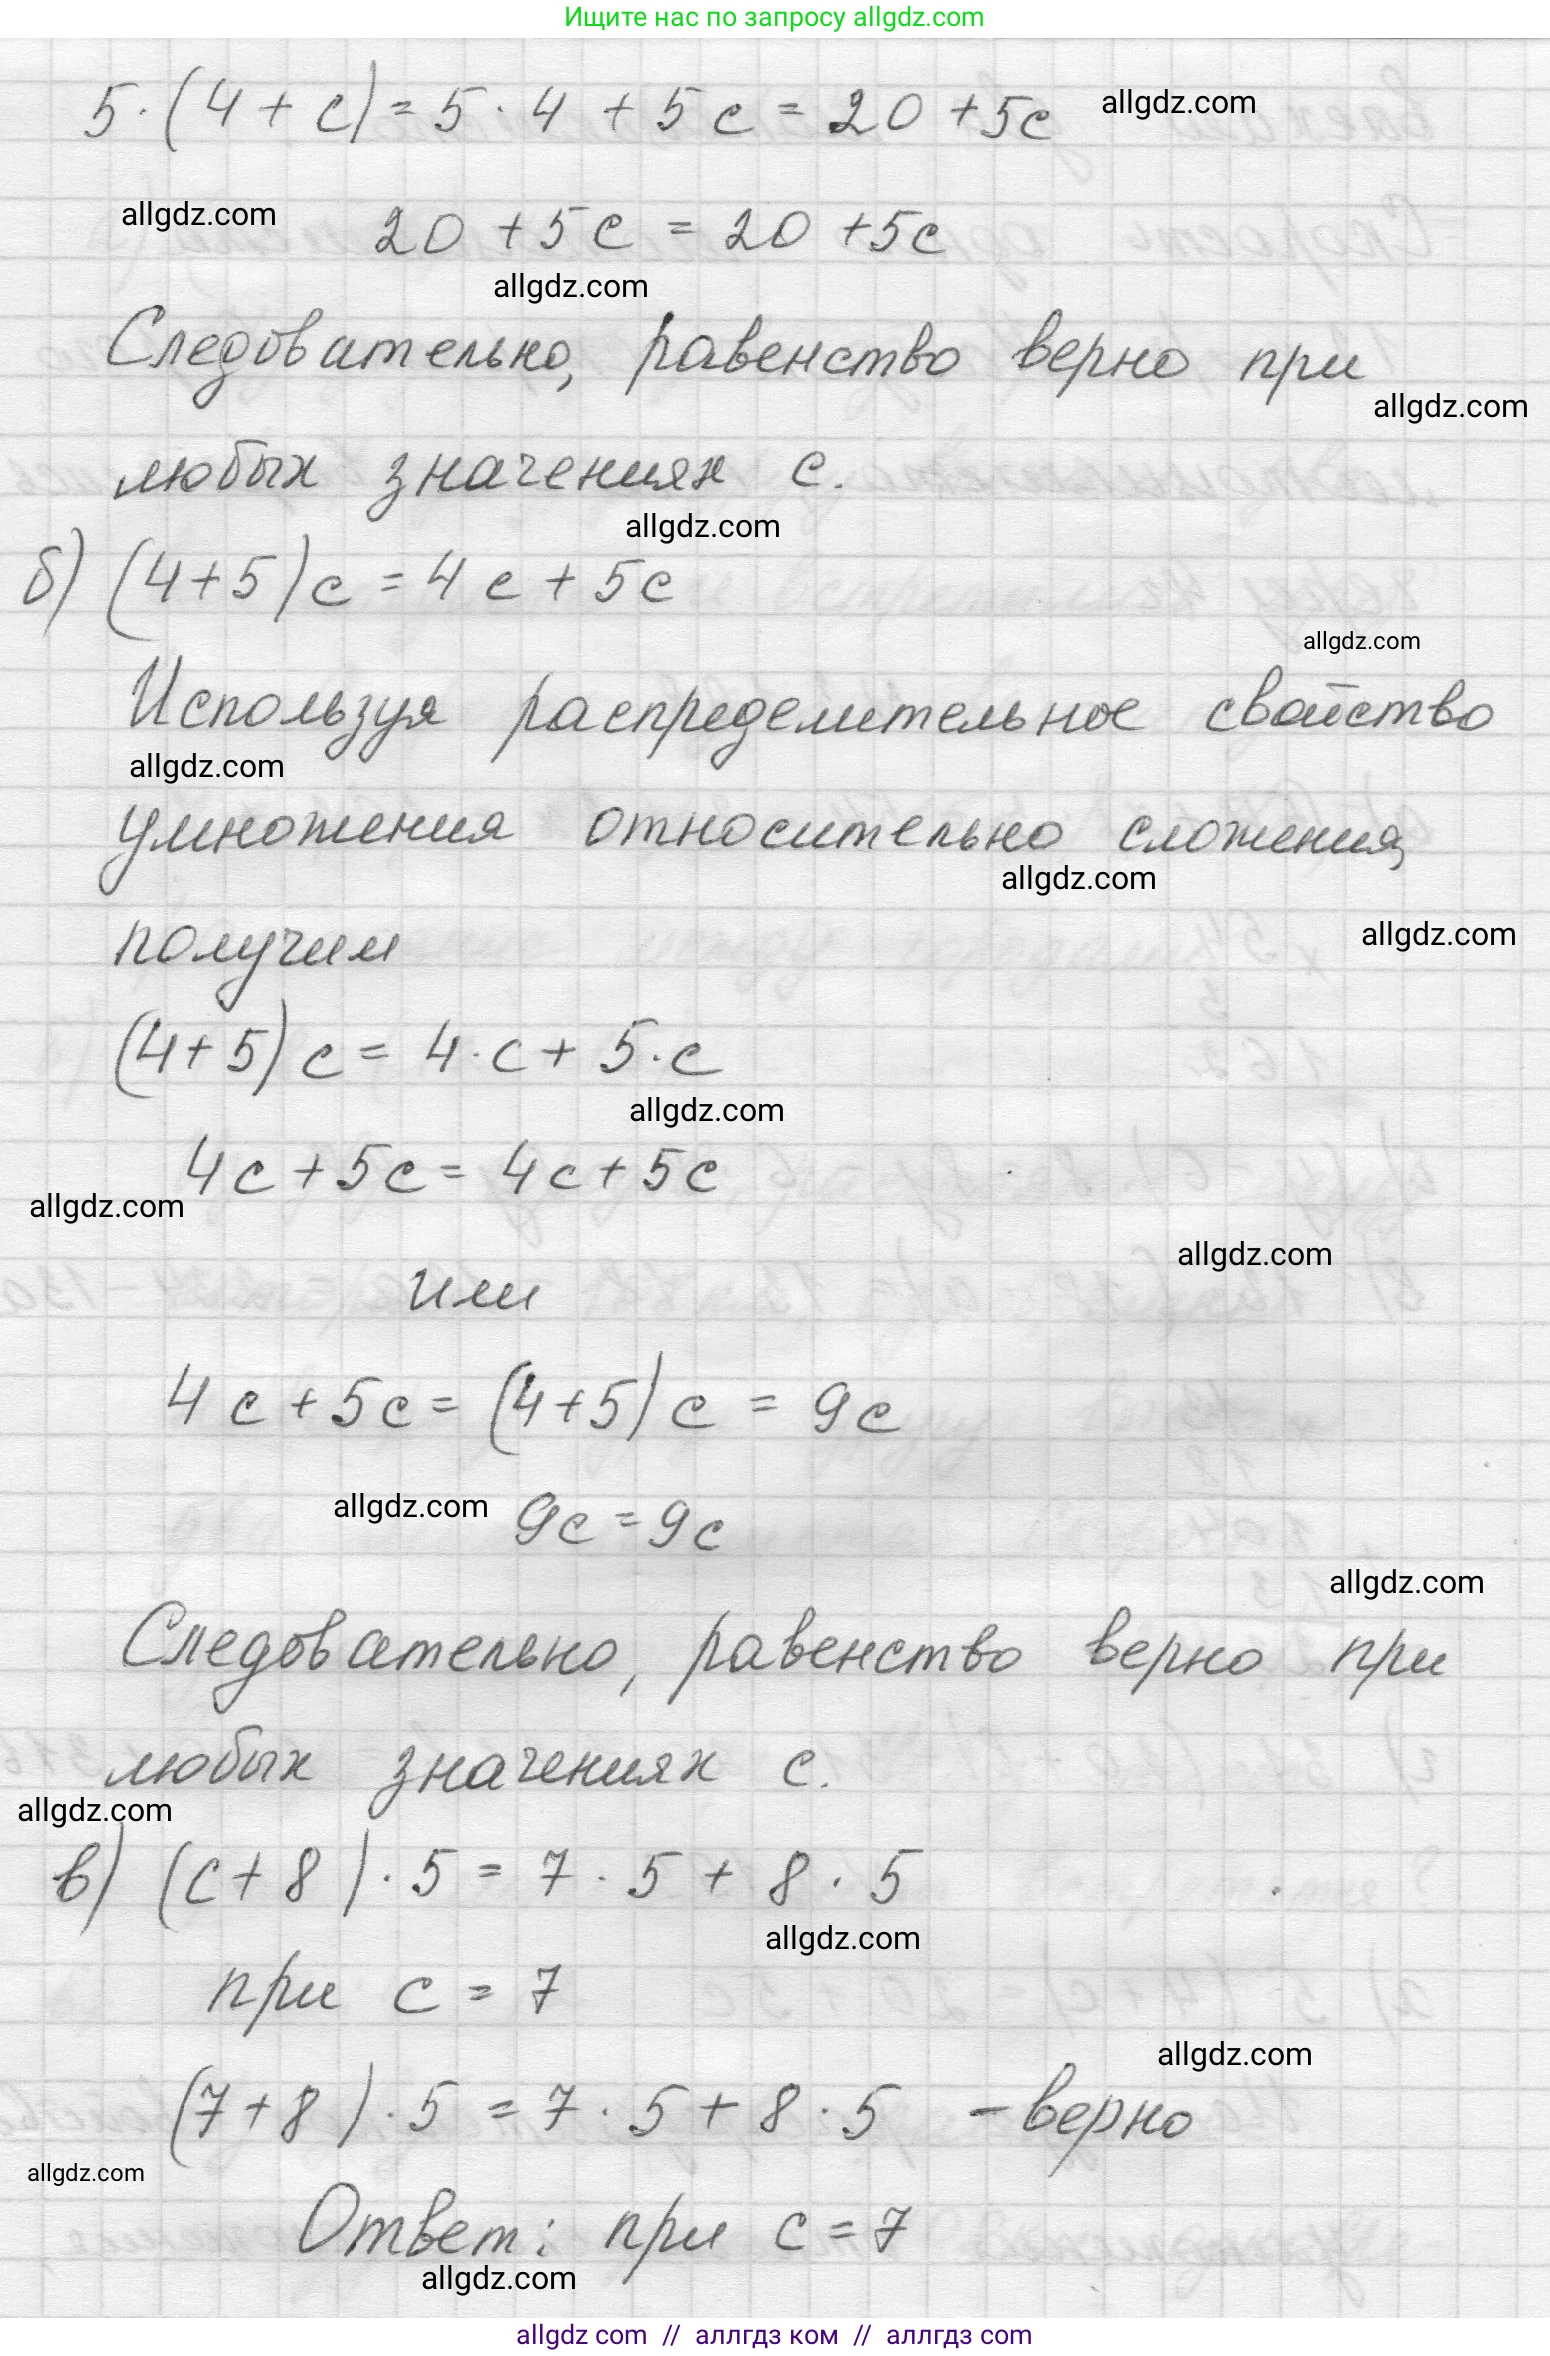 Ищите нас по запросу allgdz.com
5·(4+c)=5·4+5c=20+5c allgdz.com
allgdz.com 20+5c=20+5c
allgdz.com
Следовательно, равенство верно при
allgdz.com
любых значениях c.
allgdz.com
б) (4+5)c=4c+5c
allgdz.com
Используя распределительное свойство
allgdz.com
умножения относительно сложения,
allgdz.com
получим allgdz.com
(4+5)c=4·c+5·c
allgdz.com
4c+5c=4c+5c
allgdz.com
allgdz.com
или
4c+5c=(4+5)c=9c
allgdz.com 9c=9c
allgdz.com
Следовательно, равенство верно при
любых значениях c.
allgdz.com
в) (c+8)·5=7·5+8·5
allgdz.com
при c=7
allgdz.com
(7+8)·5=7·5+8·5 - верно
allgdz.com
Ответ: при c=7
allgdz.com
allgdz com // аллгдз ком // аллгдз com